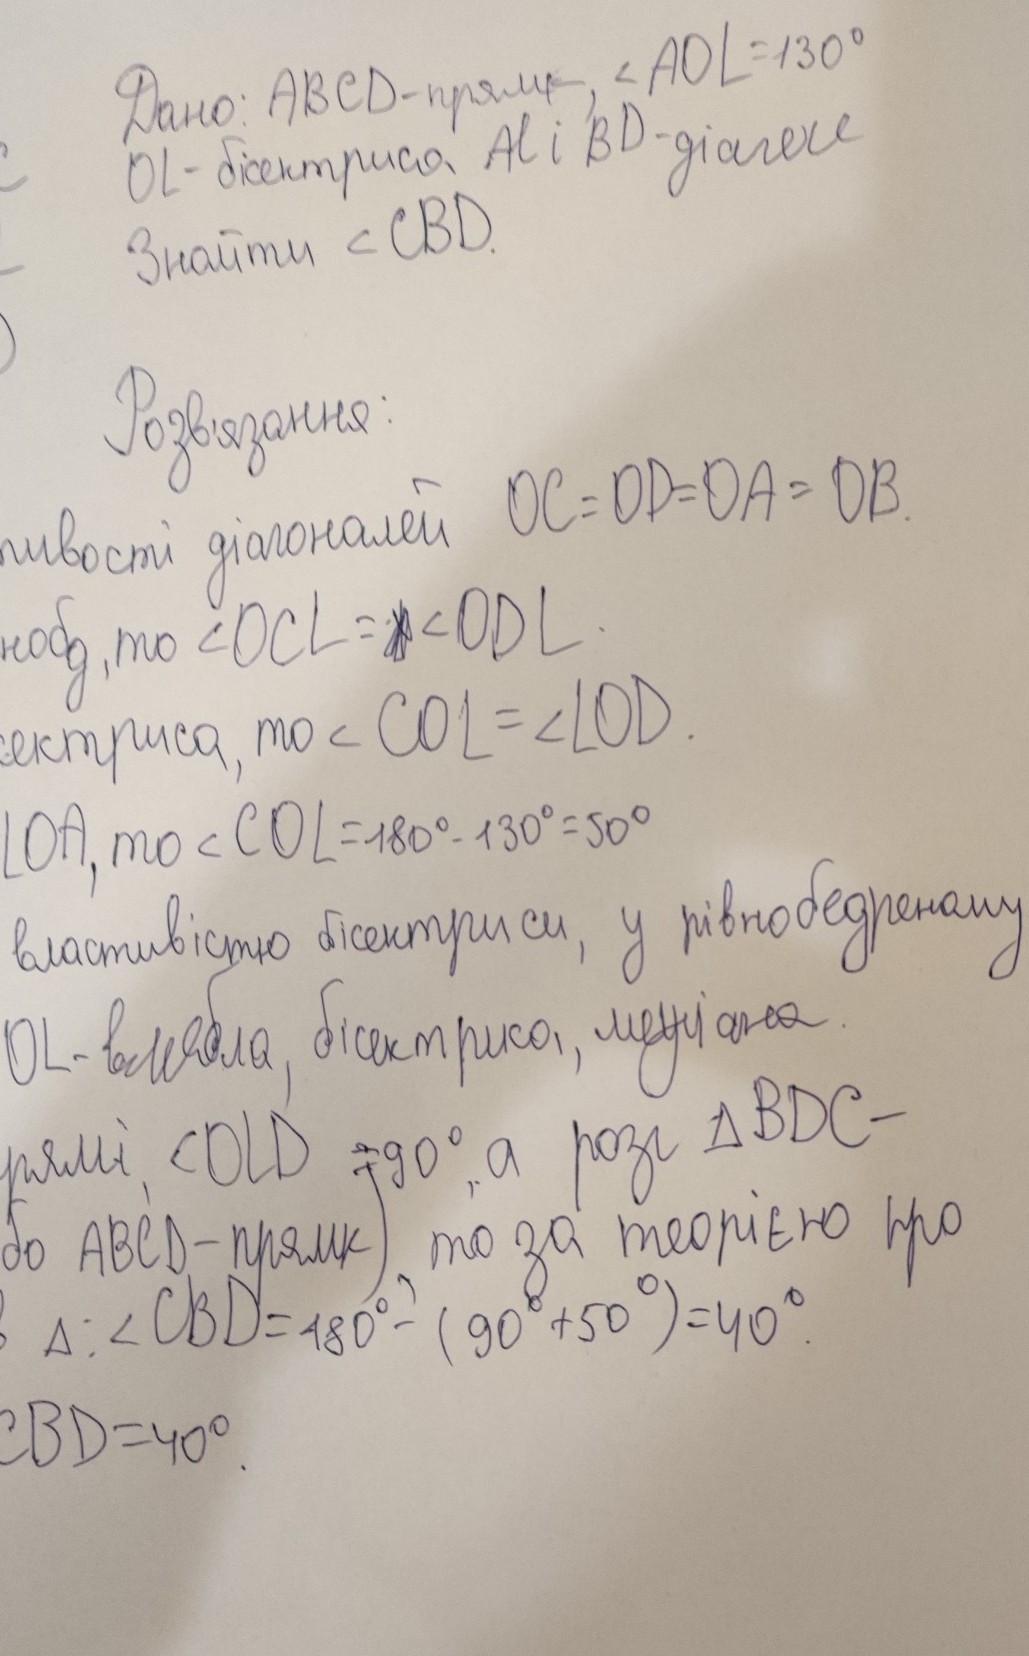 Дано: ABCD-прямк, <AOL=130°
OL-бісектриса AC і BD-діагон
Знайти <CBD.
Розв'язання:
тивості діагоналей OC=OD=OA=OB.
нобд, то <OCL=<ODL.
сектриса, то <COL=<LOD.
LOA, то <COL=180°-130°=50°
властивістю бісектриси, у рівнобедреному
OL-висота, бісектриса, медіана.
рямі, <OLD =90°, а розг △BDC-
бо ABCD-прямк), то за теорією про
в △: <CBD=180°-(90°+50°)=40°.
CBD=40°.